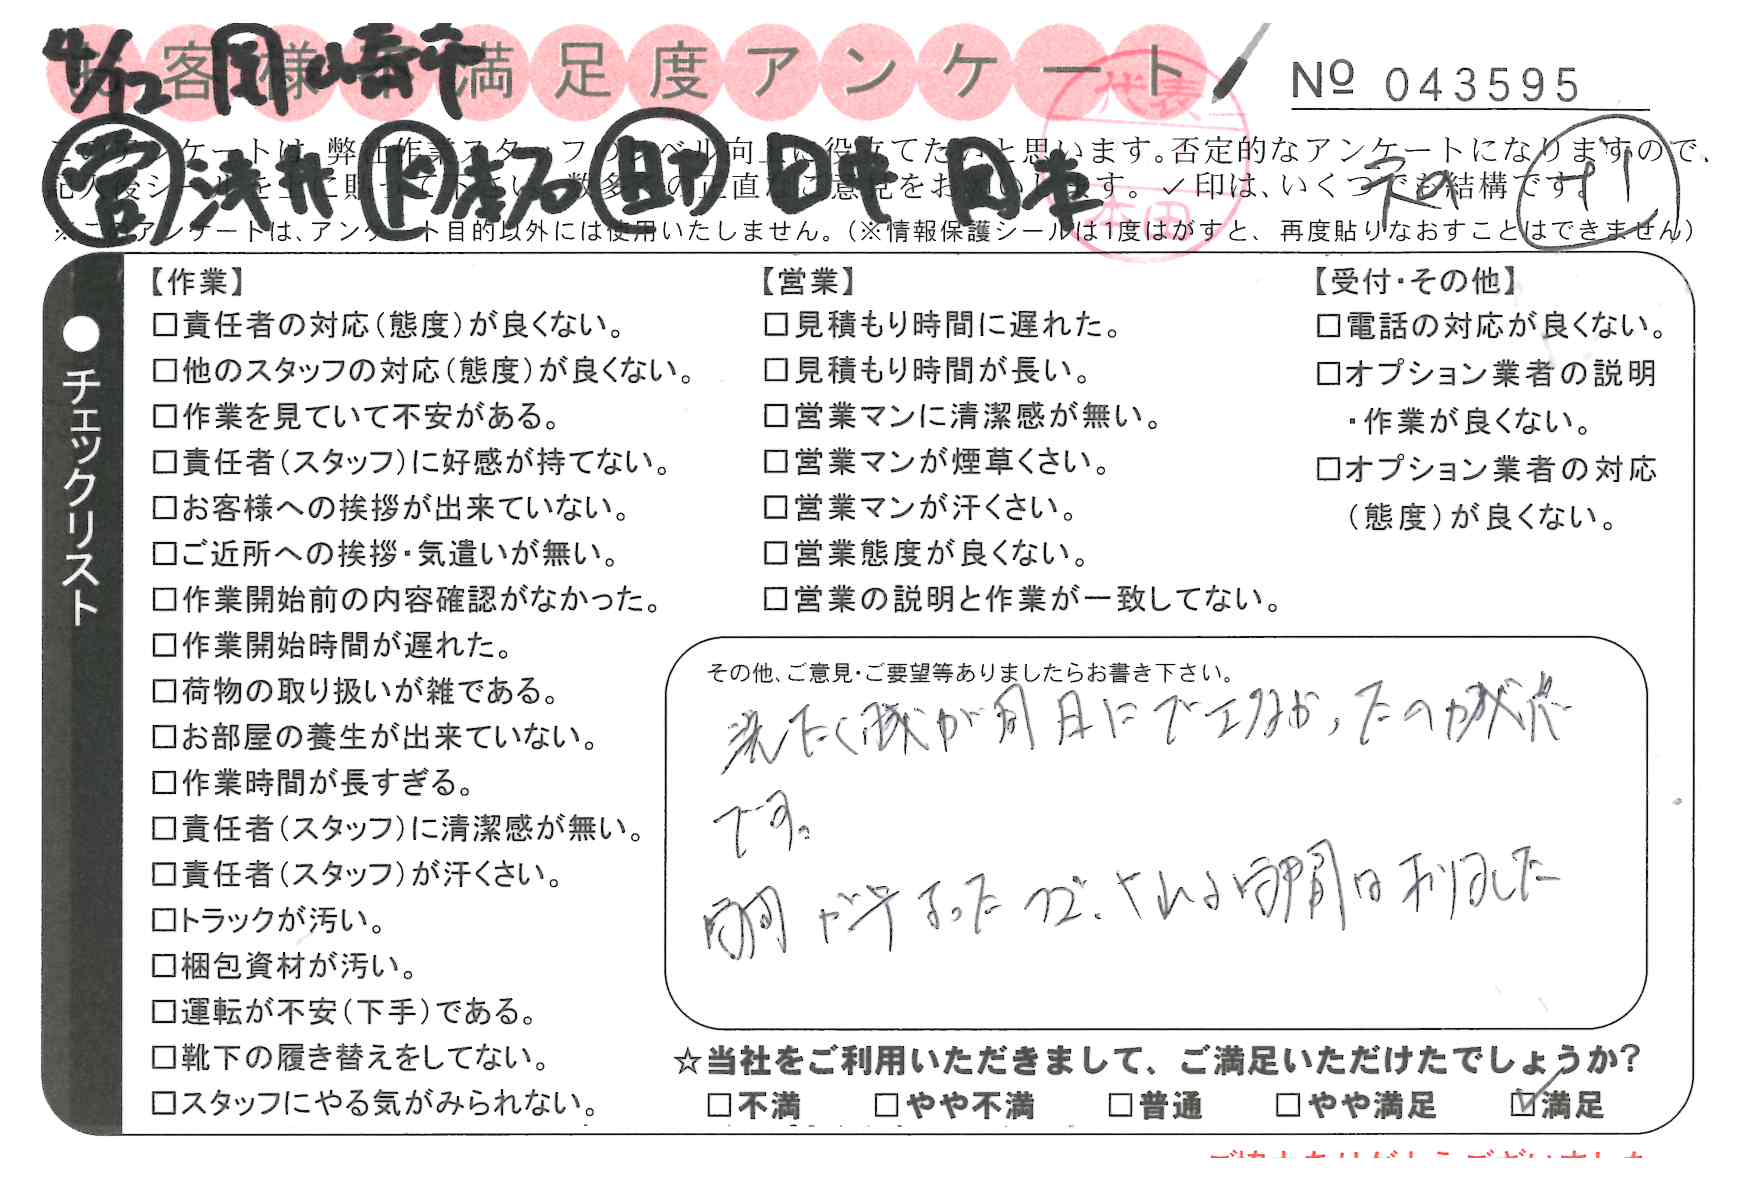 お客様ご満足度アンケート
4/12 岡崎千
Nº 043595
このアンケートは、弊社作業スタッフのレベル向上に役立てたいと思います。否定的なアンケートになりますので、
記入後シールを上に貼って下さい。数多くの正直なご意見をお願いします。✓印は、いくつでも結構です。
営 浅井 ド 助 田中 岡本
+1
代表
本田
※このアンケートは、アンケート目的以外には使用いたしません。（※情報保護シールは1度はがすと、再度貼りなおすことはできません）
●チェックリスト
【作業】
□責任者の対応（態度）が良くない。
□他のスタッフの対応（態度）が良くない。
□作業を見ていて不安がある。
□責任者（スタッフ）に好感が持てない。
□お客様への挨拶が出来ていない。
□ご近所への挨拶・気遣いが無い。
□作業開始前の内容確認がなかった。
□作業開始時間が遅れた。
□荷物の取り扱いが雑である。
□お部屋の養生が出来ていない。
□作業時間が長すぎる。
□責任者（スタッフ）に清潔感が無い。
□責任者（スタッフ）が汗くさい。
□トラックが汚い。
□梱包資材が汚い。
□運転が不安（下手）である。
□靴下の履き替えをしてない。
□スタッフにやる気がみられない。
【営業】
□見積もり時間に遅れた。
□見積もり時間が長い。
□営業マンに清潔感が無い。
□営業マンが煙草くさい。
□営業マンが汗くさい。
□営業態度が良くない。
□営業の説明と作業が一致してない。
【受付・その他】
□電話の対応が良くない。
□オプション業者の説明
・作業が良くない。
□オプション業者の対応
（態度）が良くない。
その他、ご意見・ご要望等ありましたらお書き下さい。
洗たく機が当日に
です。
時間が早まったので、
☆当社をご利用いただきまして、ご満足いただけたでしょうか？
□不満 □やや不満 □普通 □やや満足 ☑満足
ご協力ありがとうございました